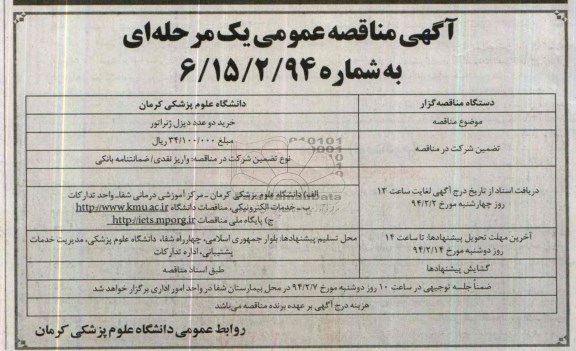 آگهی مناقصه عمومی یک مرحله‌ای
به شماره ۶/۱۵/۲/۹۴
دستگاه مناقصه‌گزار
دانشگاه علوم پزشکی کرمان
موضوع مناقصه
خرید دو عدد دیزل ژنراتور
تضمین شرکت در مناقصه
مبلغ ۳۴/۱۰۰/۰۰۰ ریال
نوع تضمین شرکت در مناقصه: واریز نقدی/ ضمانتنامه بانکی
دریافت اسناد از تاریخ درج آگهی لغایت ساعت ۱۳
روز چهارشنبه مورخ ۹۴/۲/۲
الف) دانشگاه علوم پزشکی کرمان ـ مرکز آموزشی درمانی شفا، واحد تدارکات
ب ـ خدمات الکترونیکی، مناقصات دانشگاه http://www.kmu.ac.ir
ج) پایگاه ملی مناقصات http://iets.mporg.ir
آخرین مهلت تحویل پیشنهادها: تا ساعت ۱۴
روز دوشنبه مورخ ۹۴/۲/۱۴
محل تسلیم پیشنهادها: بلوار جمهوری اسلامی، چهارراه شفا، دانشگاه علوم پزشکی، مدیریت خدمات
پشتیبانی، اداره تدارکات
گشایش پیشنهادها
طبق اسناد مناقصه
ضمناً جلسه توجیهی در ساعت ۱۰ روز دوشنبه مورخ ۹۴/۲/۷ در محل بیمارستان شفا در واحد امور اداری برگزار خواهد شد
هزینه درج آگهی بر عهده برنده مناقصه می‌باشد
روابط عمومی دانشگاه علوم پزشکی کرمان